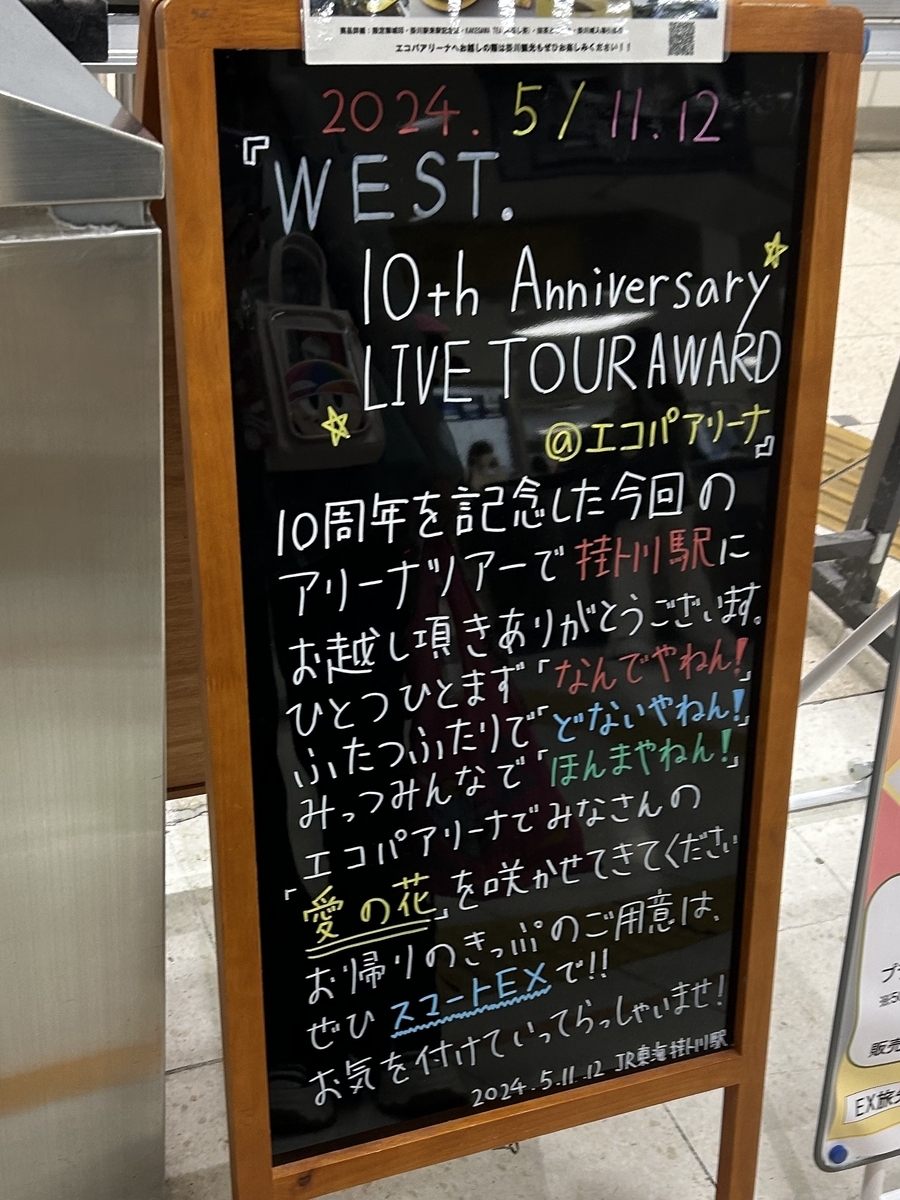 エコパアリーナへお越しの際は掛川観光もぜひお楽しみください！！
2024. 5/11.12
『WEST.
10th Anniversary
LIVE TOUR AWARD
@エコパアリーナ』
10周年を記念した今回の
アリーナツアーで掛川駅に
お越し頂きありがとうございます。
ひとつひとまず「なんでやねん!」
ふたつふたりで「どないやねん!」
みっつみんなで「ほんまやねん!」
エコパアリーナでみなさんの
「愛の花」を咲かせてきてください
お帰りのきっぷのご用意は、
ぜひスマートEXで!!
お気を付けていってらっしゃいませ!
2024.5.11.12 JR東海掛川駅
販売
EX旅